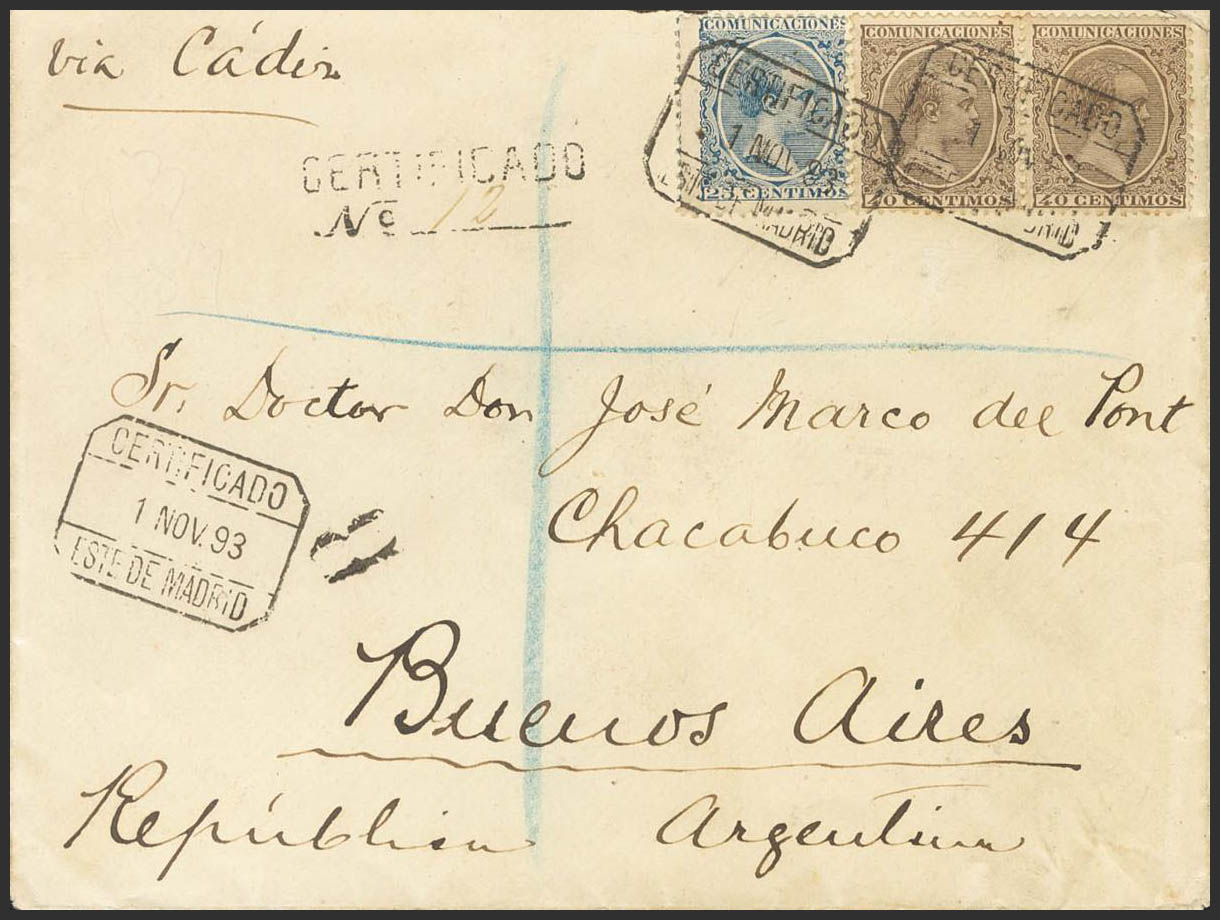 via Cádiz
COMUNICACIONES
COMUNICACIONES
COMUNICACIONES
25 CENTIMOS
40 CENTIMOS
40 CENTIMOS
CERTIFICADO
1 NOV. 93
ESTE DE MADRID
CERTIFICADO
1
MADRID
CERTIFICADO
Nº 12
Sr. Doctor Don José Marco del Pont
Chacabuco 414
CERTIFICADO
1 NOV. 93
ESTE DE MADRID
Buenos Aires
República Argentina